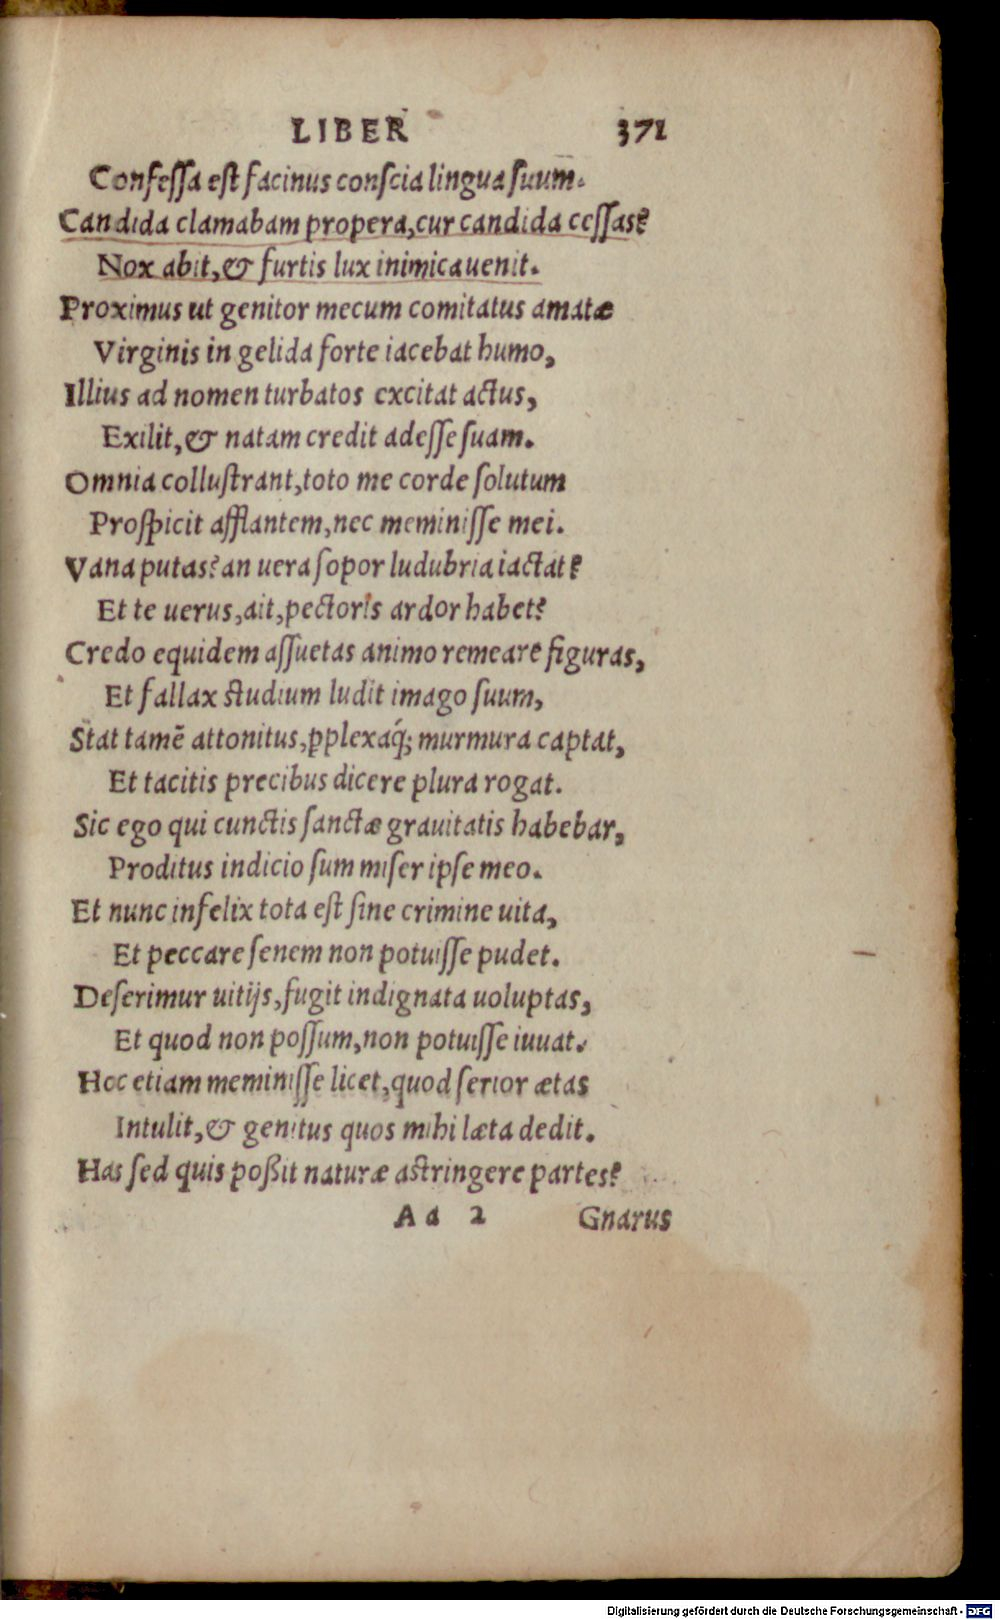 LIBER 371
Confeſſa eſt facinus conſcia lingua ſuum.
Candida clamabam propera, cur candida ceſſas?
Nox abit, & furtis lux inimica uenit.
Proximus ut genitor mecum comitatus amatæ
Virginis in gelida forte iacebat humo,
Illius ad nomen turbatos excitat actus,
Exilit, & natam credit adeſſe ſuam.
Omnia colluſtrant, toto me corde ſolutum
Proſpicit afflantem, nec meminiſſe mei.
Vana putas? an uera ſopor ludubria iactat?
Et te uerus, ait, pectoris ardor habet?
Credo equidem aſſuetas animo remeare figuras,
Et fallax ſtudium ludit imago ſuum,
Stat tamē attonitus, ꝑplexaq́; murmura captat,
Et tacitis precibus dicere plura rogat.
Sic ego qui cunctis ſanctæ grauitatis habebar,
Proditus indicio ſum miſer ipſe meo.
Et nunc infelix tota eſt ſine crimine uita,
Et peccare ſenem non potuiſſe pudet.
Deſerimur uitijs, fugit indignata uoluptas,
Et quod non poſſum, non potuiſſe iuuat.
Hoc etiam meminiſſe licet, quod ſerior ætas
Intulit, & genitus quos mihi læta dedit.
Has ſed quis poßit naturæ aſtringere partes?
Aa 2 Gnarus
Digitalisierung gefördert durch die Deutsche Forschungsgemeinschaft - DFG